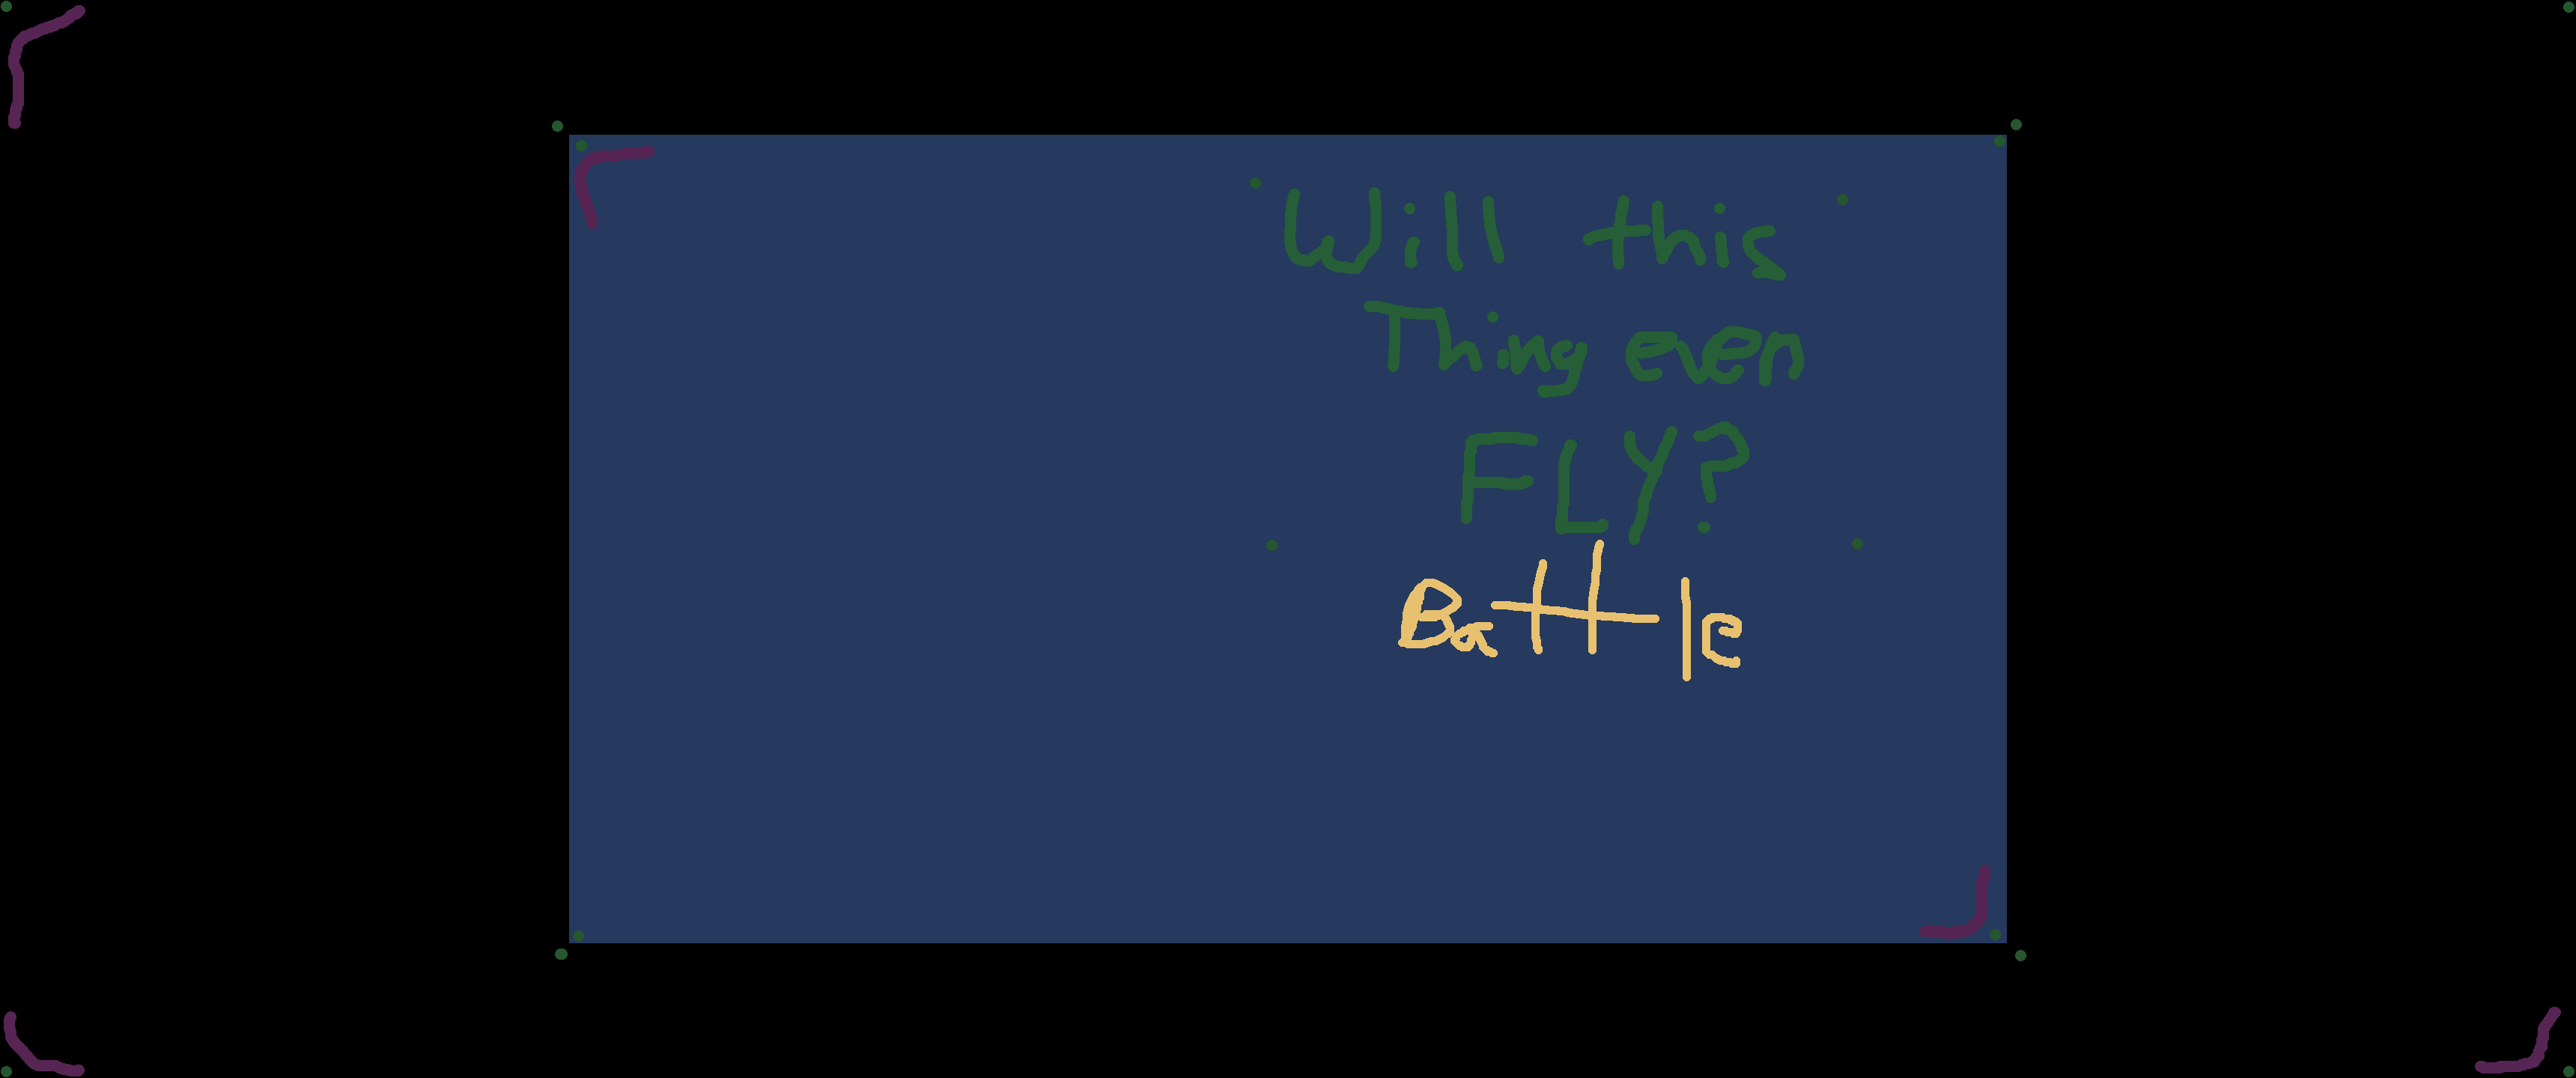 Will this
Thing even
FLY?
Battle